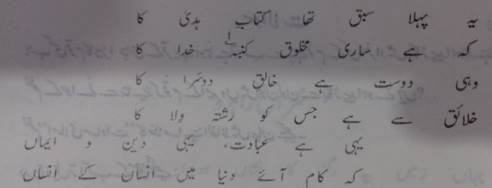 یہ پہلا سبق تھا کتاب ہدیٰ کا
کہ ہے ساری مخلوق کنبہ خدا کا
وہی دوست ہے خالق دوسرا کا
خلائق سے ہے جس کو رشتہ ولا کا
یہی ہے عبادت، یہی دین و ایماں
کہ کام آئے دنیا میں انسان کے انساں